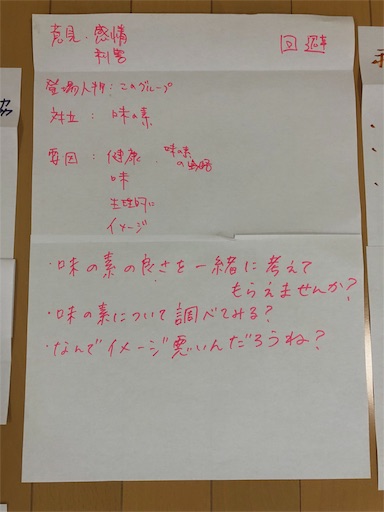 意見・感情
利害
回避
登場人物：このグループ
対立：味の素
要因：健康
味の素の
味
生理的に
イメージ
・味の素の良さを一緒に考えて
もらえませんか？
・味の素について調べてみる？
・なんでイメージ悪いんだろうね？